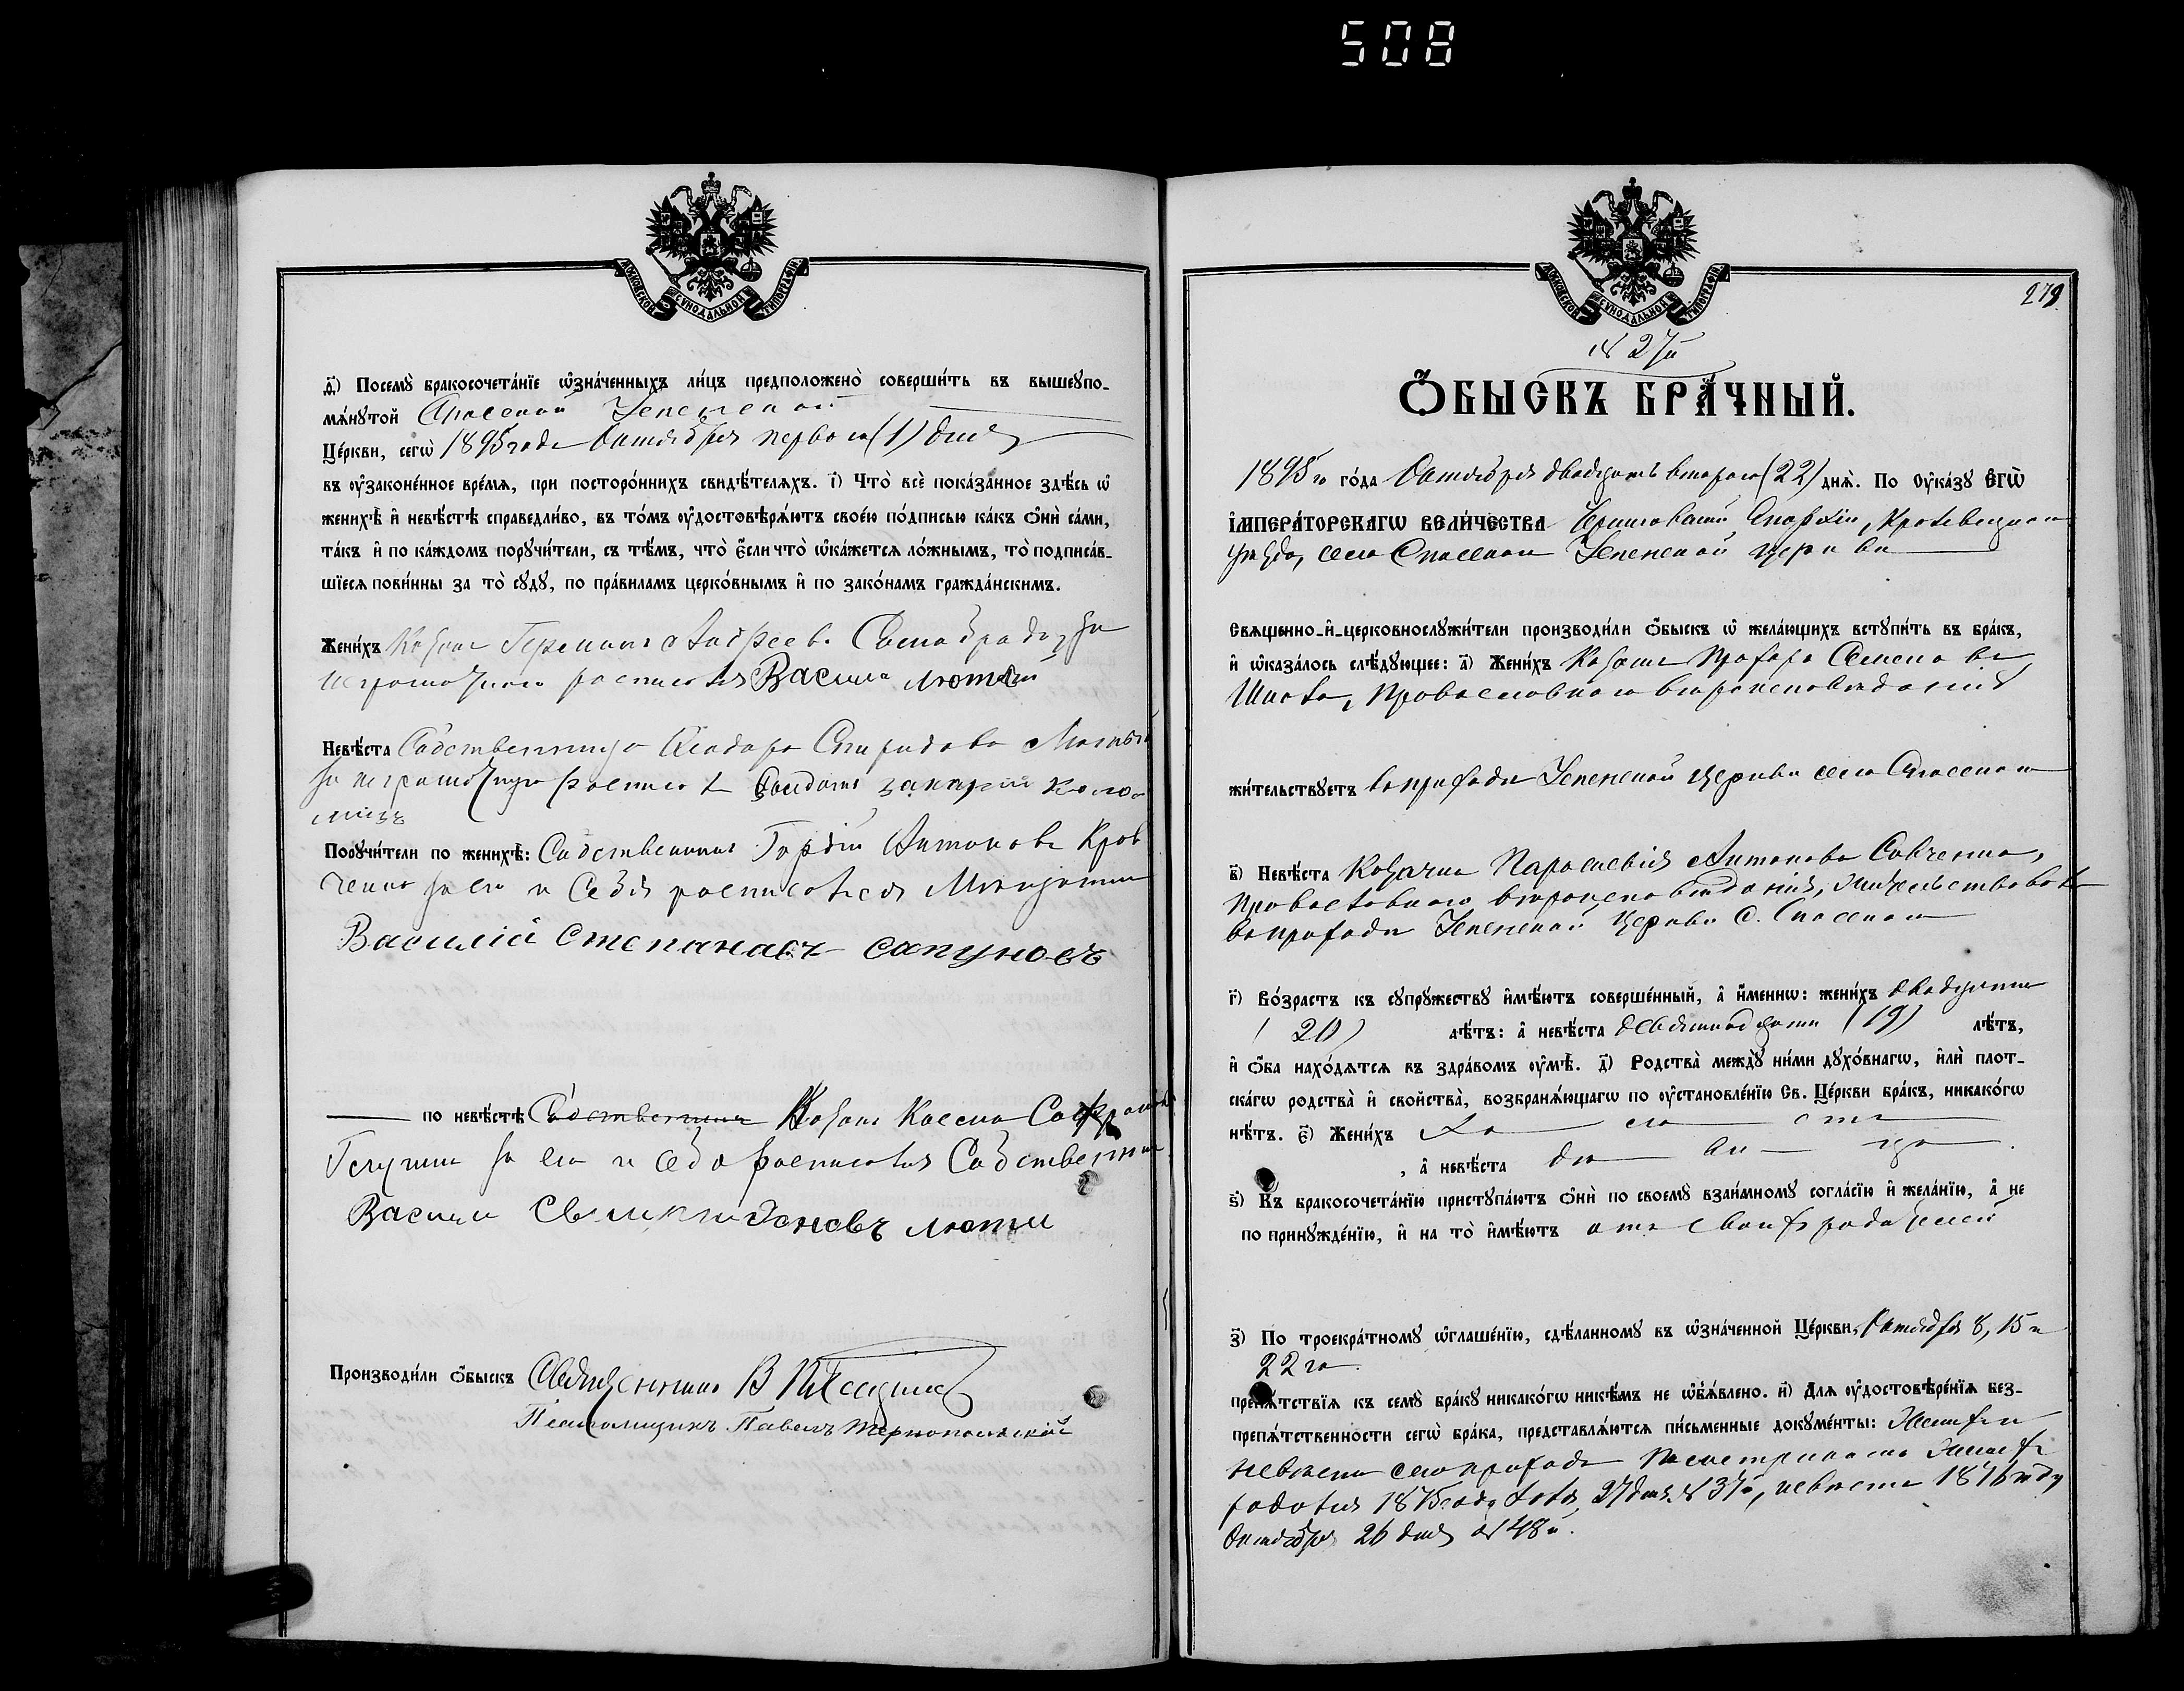 508
МОСКОВСКОЙ СУНОДАЛЬНОЙ ТИПОГРАФІИ
д҃) Посемꙋ̀ бракосочета́нїе ѡ҆зна́ченныхъ ли́цъ предположено̀ соверши́ть въ вышеꙋпо-
мѧ́нꙋтой Спасской
Це́ркви, сегѡ̀ 1895 года Октября перваго (1) дня
въ ᲂу҆законе́нное вре́мѧ, при посторо́ннихъ свидѣ́телѧхъ. і҃) Что̀ всѐ пока́занное здѣ́сь ѡ҆
женихѣ̀ и҆ невѣ́стѣ справедли́во, въ то́мъ ᲂу҆достовѣрѧ́ютъ свое́ю по́дписью ка́къ ѻ҆нѝ са́ми,
та́къ и҆ по ка́ждомъ порꙋчи́тели, съ тѣ́мъ, что̀ є҆́сли что̀ ѡ҆ка́жетсѧ ло́жнымъ, то̀ подписа́в-
шїесѧ пови́нны за то̀ сꙋдꙋ̀, по пра́виламъ церко́внымъ и҆ по зако́намъ гражда́нскимъ.
Жени́хъ Козакъ Андреевъ за
неграмотнаго росписался Василій Лютый
Невѣ́ста Собственница Спиридова
за неграмотную росписался Солдатъ
Порꙋчи́тели по женихѣ̀: Собственникъ Гордій Антоновъ Крав
ченко за его и себя росписался
Василій Степановъ Сапуновъ
по невѣ́стѣ Собственникъ Козакъ Косма
за его и себя росписался Собственникъ
Василій Лютый
Производи́ли ѻ҆́быскъ Священникъ В
Псаломщикъ Павелъ Тернопольскій
279
МОСКОВСКОЙ СУНОДАЛЬНОЙ ТИПОГРАФІИ
№ 27й
Ѻ҆БЫСКЪ БРА́ЧНЫЙ.
1895 го го́да Октября двадцать второго (22) днѧ̀. По ᲂу҆ка́зꙋ Е҆ГѠ̀
І҆МПЕРА́ТОРСКАГѠ ВЕЛИ́ЧЕСТВА Черниговской Епархіи, Кролевецкаго
уѣзда, села Спасскаго Успенской церкви
Свѧщенно-и҆-церковнослꙋжи́тели производи́ли ѻ҆́быскъ ѡ҆ жела́ющихъ встꙋпи́ть въ бра́къ,
и҆ ѡ҆каза́лось слѣ́дꙋющее: а҃) Жени́хъ Козакъ Семеновъ
православнаго вѣроисповѣданія
жи́тельствꙋетъ въ приходѣ Успенской Церкви села Спасскаго
в҃) Невѣ́ста Козачка Параскевія Антонова Савченко,
православнаго вѣроисповѣданія, жительствовала
въ приходѣ Успенской Церкви с. Спасскаго
г҃) Во́зрастъ къ сꙋпрꙋ́жествꙋ и҆мѣ́ютъ соверше́нный, а҆ и҆́меннѡ: жени́хъ двадцати
(20) лѣ́тъ: а҆ невѣ́ста девятнадцати (19) лѣ́тъ,
и҆ ѻ҆́ба нахо́дѧтсѧ въ здра́вомъ ᲂу҆мѣ̀. д҃) Родства̀ междꙋ̀ ни́ми дꙋхо́внагѡ, и҆лѝ плот-
ска́гѡ родства̀ и҆ сво́йства̀, возбранѧ́ющагѡ по ᲂу҆становле́нїю Св. Це́ркви бра́къ, никако́гѡ
нѣ́тъ. є҃) Жени́хъ хо—ло—стъ
, а҆ невѣ́ста дѣ—ви—ца.
ѕ҃) Къ бракосочета́нїю пристꙋпа́ютъ ѻ҆нѝ по своемꙋ̀ взаи́мномꙋ согла́сїю и҆ жела́нїю, а҆ не
по принꙋжде́нїю, и҆ на то̀ и҆мѣ́ютъ отъ своихъ родителей
з҃) По троекра́тномꙋ ѡ҆глаше́нїю, сдѣ́ланномꙋ въ ѡ҆зна́ченной Це́ркви, Октября 8, 15 и
22 го
препѧ́тствїѧ къ семꙋ̀ бра́кꙋ никако́гѡ никѣ́мъ не ѡ҆б̾ѧ́влено. и҃) Длѧ ᲂу҆достовѣре́нїѧ без-
препѧ́тственности сегѡ̀ бра́ка, представлѧ́ютсѧ пи́сьменные докꙋме́нты: Женихъ и
невѣста сего прихода По метрикамъ Женихъ
родился 1875 году 27 дня № 37й, невѣста 1876 году
Октября 26 дня № 48й.